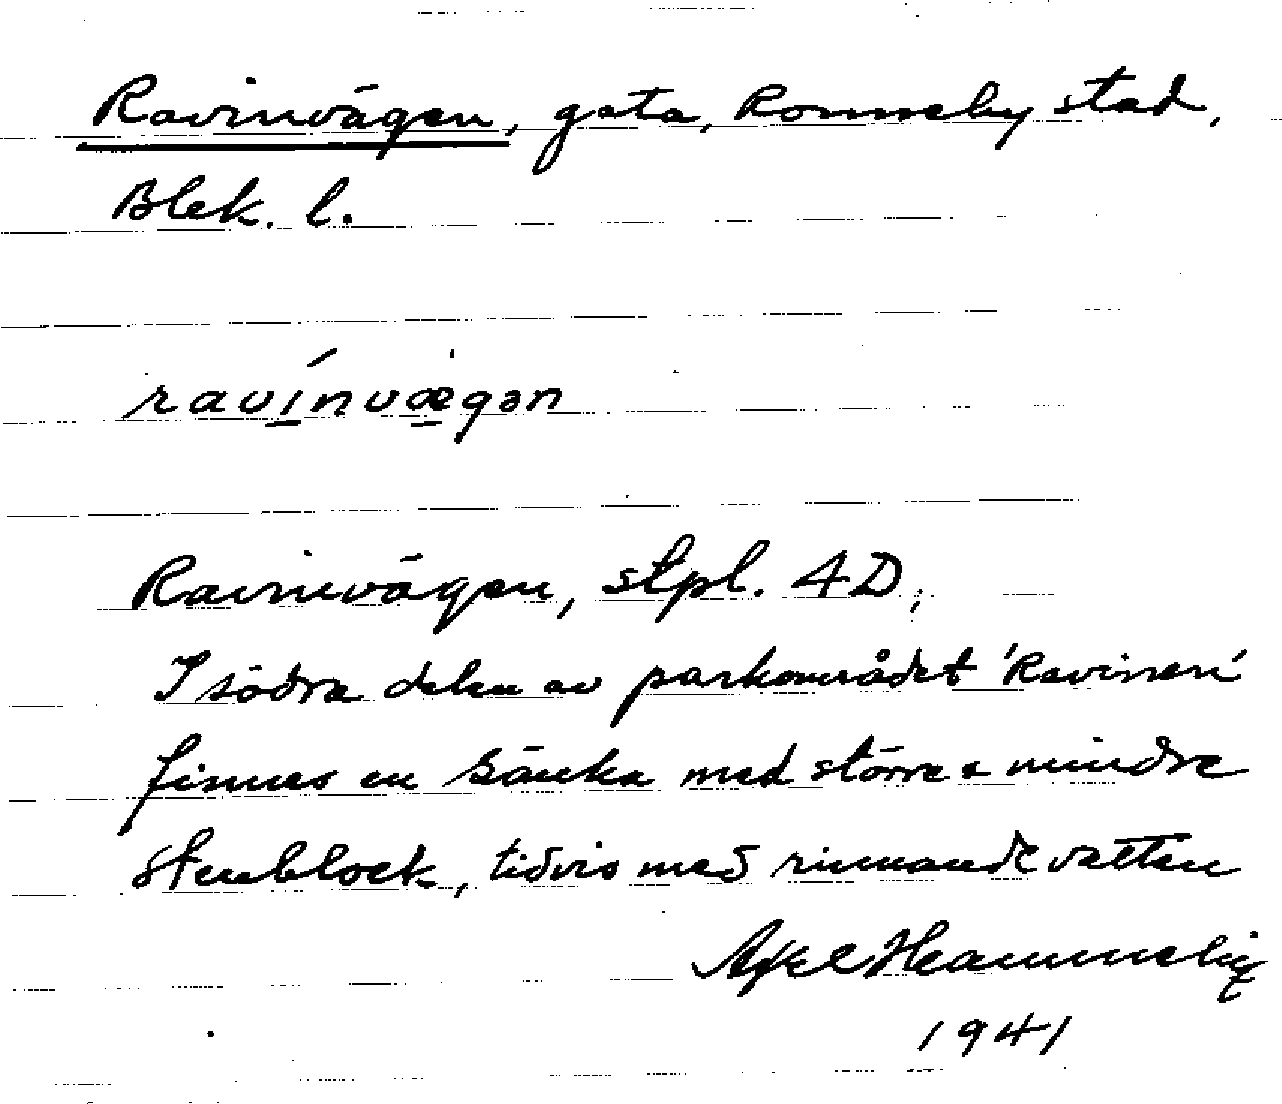 Ravinvägen, gata, Ronneby stad,
Blek. l.
ravi´nvægən
Ravinvägen, stpl. 4D;
I södra delen av parkområdet 'Ravinen'
finnes en sänka med större & mindre
stenblock, tidvis med rinnande vatten
Axel
1941